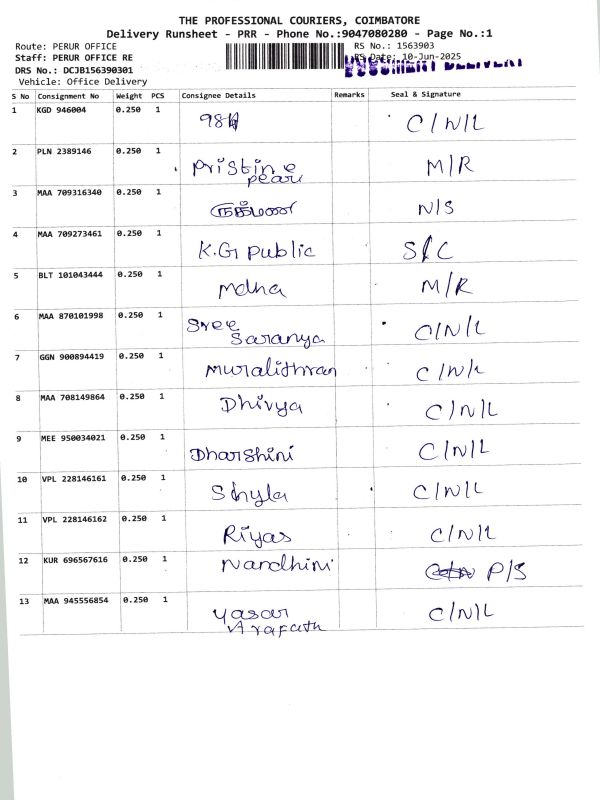 THE PROFESSIONAL COURIERS, COIMBATORE
Delivery Runsheet - PRR - Phone No.:9047080280 - Page No.:1
Route: PERUR OFFICE
RS No.: 1563903
Staff: PERUR OFFICE RE
RS Date: 10-Jun-2025
DOCUMENT DELIVERY
DRS No.: DCJB156390301
Vehicle: Office Delivery
S No Consignment No Weight PCS Consignee Details Remarks Seal & Signature
1 KGD 946004 0.250 1 C/N/L
2 PLN 2389146 0.250 1 Pristine M/R
pearl
3 MAA 709316340 0.250 1 N/S
4 MAA 709273461 0.250 1 K.G public S/C
5 BLT 101043444 0.250 1 Mdha M/R
6 MAA 870101998 0.250 1 Sree C/N/L
Saranya
7 GGN 900894419 0.250 1 Muralithran C/N/L
8 MAA 708149864 0.250 1 Dhivya C/N/L
9 MEE 950034021 0.250 1 Dharshini C/N/L
10 VPL 228146161 0.250 1 Shyla C/N/L
11 VPL 228146162 0.250 1 Riyas C/N/L
12 KUR 696567616 0.250 1 Nandhini P/S
13 MAA 945556854 0.250 1 Yasar C/N/L
Arafath